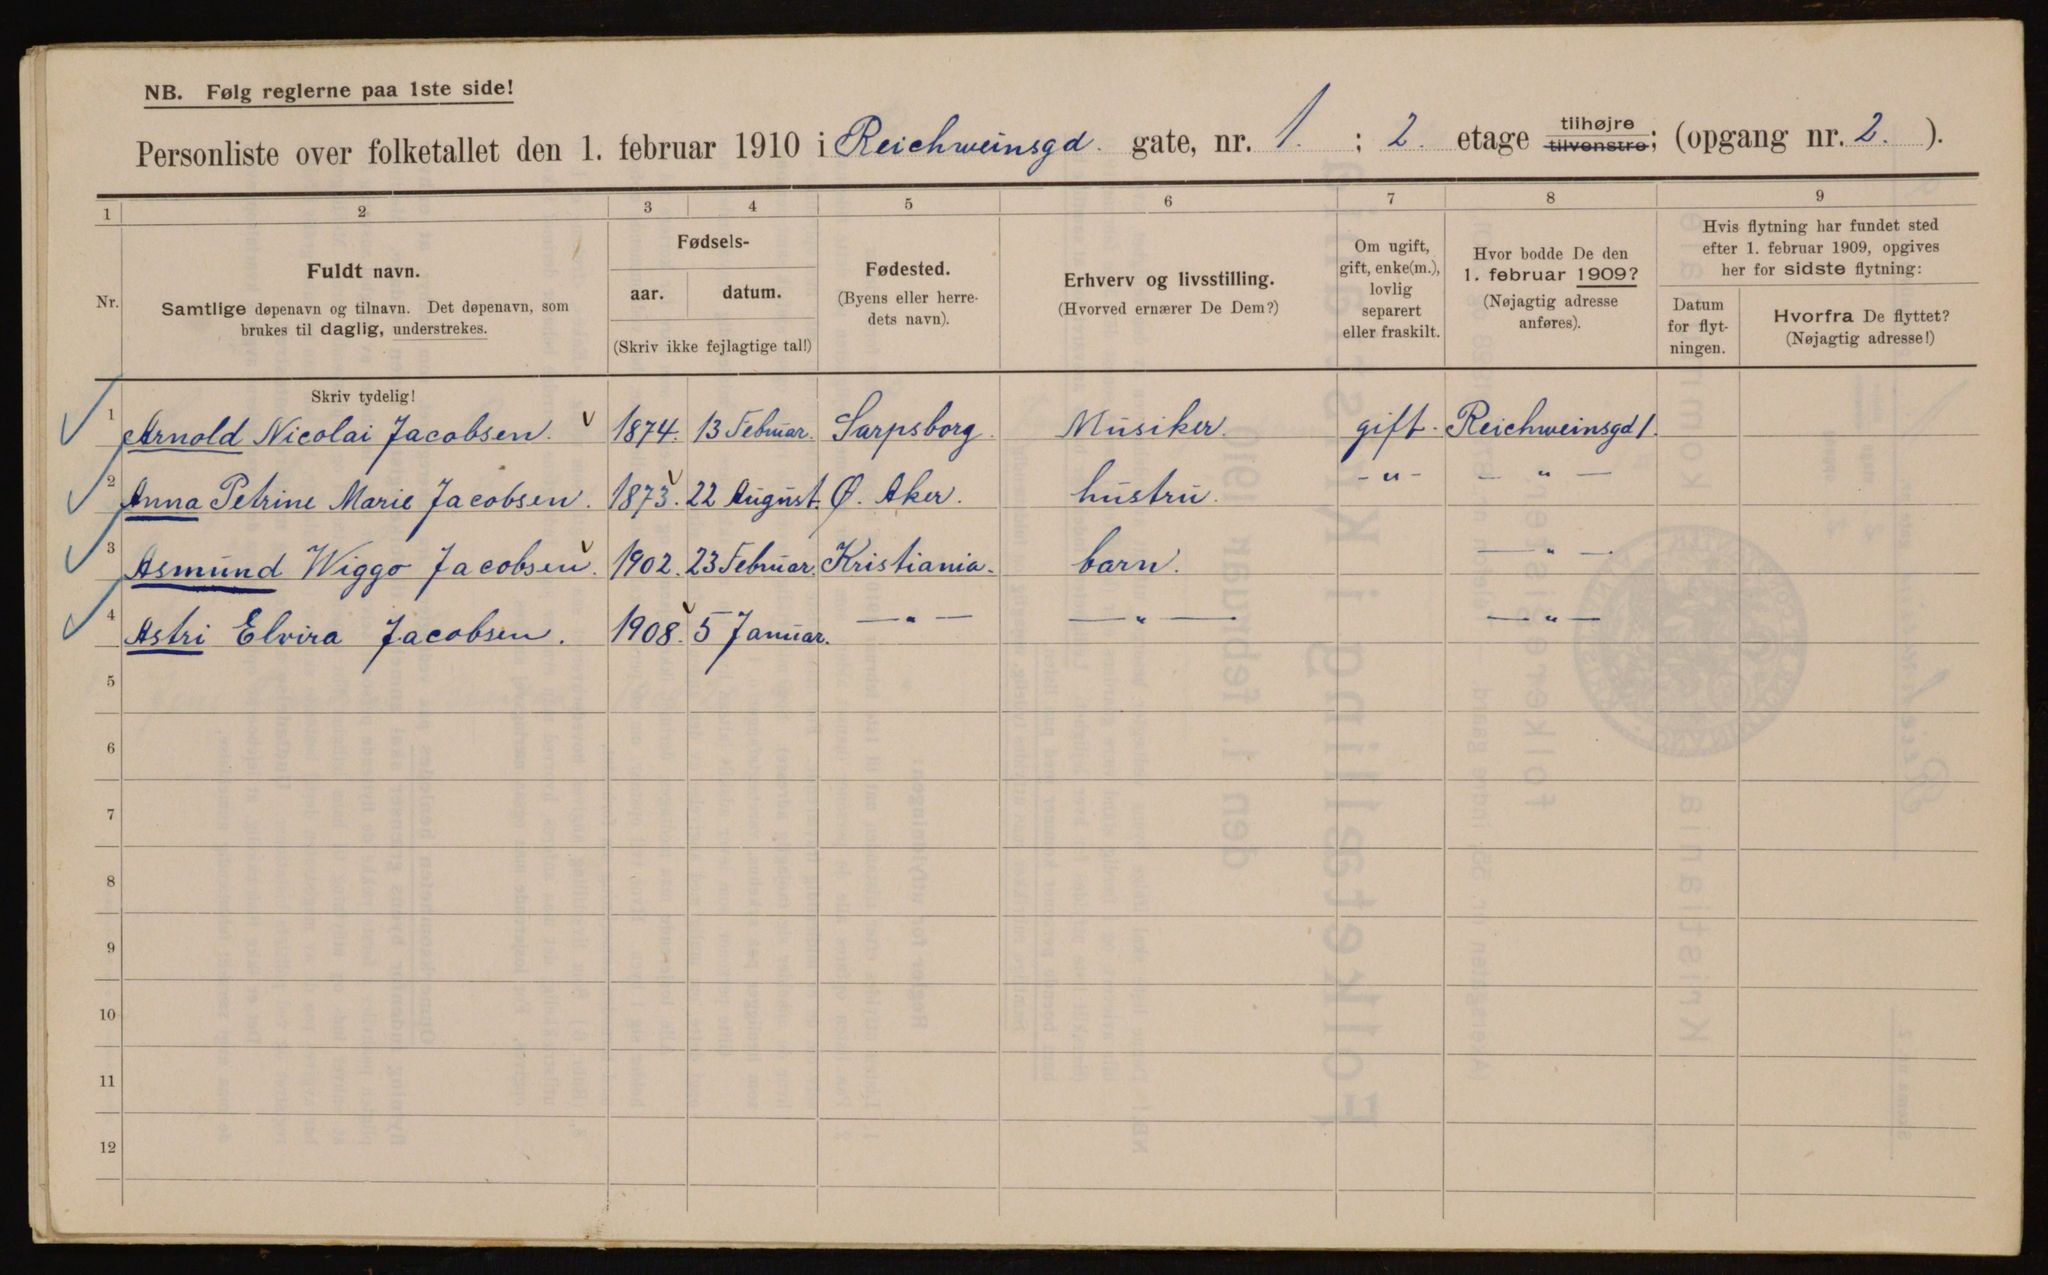 NB. Følg reglerne paa 1ste side!
Personliste over folketallet den 1. februar 1910 i Reichweinsgd. gate, nr. 1. : 2. etage tilhøjre tilvenstre; (opgang nr. 2. ).
1 2 3 4 5 6 7 8 9
Nr.
Fuldt navn.
Samtlige døpenavn og tilnavn. Det døpenavn, som
brukes til daglig, understrekes.
Fødsels-
aar. datum.
(Skriv ikke fejlagtige tal!)
Fødested.
(Byens eller herre-
dets navn).
Erhverv og livsstilling.
(Hvorved ernærer De Dem?)
Om ugift,
gift, enke(m.),
lovlig
separert
eller fraskilt.
Hvor bodde De den
1. februar 1909?
(Nøjagtig adresse
anføres).
Hvis flytning har fundet sted
efter 1. februar 1909, opgives
her for sidste flytning:
Datum
for flyt-
ningen.
Hvorfra De flyttet?
(Nøjagtig adresse!)
Skriv tydelig!
1 Arnold Nicolai Jacobsen. 1874. 13 Februar. Sarpsborg. Musiker. gift. Reichweinsgd 1.
2 Anna Petrine Marie Jacobsen. 1873. 22 August. Ø. Aker. hustru. -"- — " —
3 Asmund Wiggo Jacobsen. 1902. 23 Februar. Kristiania. barn. — " —
4 Astri Elvira Jacobsen. 1908. 5 Januar. — " — — " — — " —
5
6
7
8
9
10
11
12